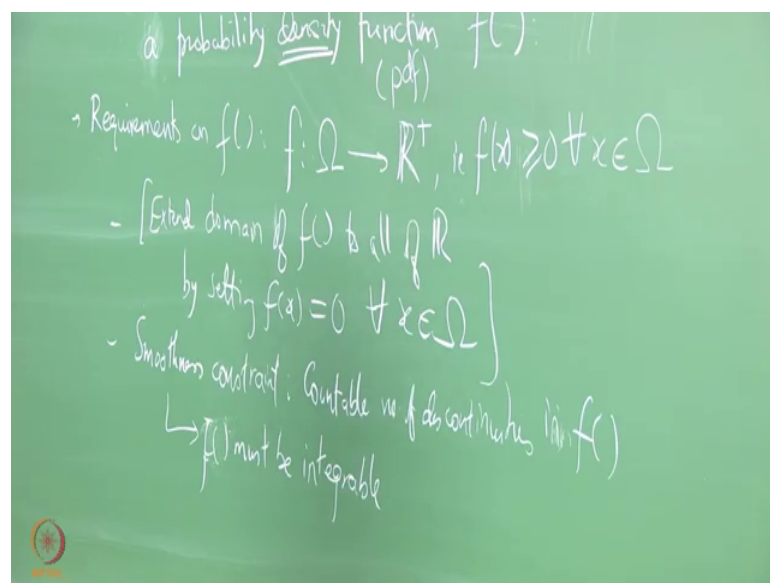 a probability density function f():
(pdf)
→ Requirements on f(): f: Ω → ℝ⁺, ie f(x) ≥ 0 ∀ x ∈ Ω
- [Extend domain of f() to all of ℝ
by setting f(x) = 0 ∀ x ∈ Ω]
- Smoothness constraint: Countable no. of discontinuities in f()
↳ f() must be integrable